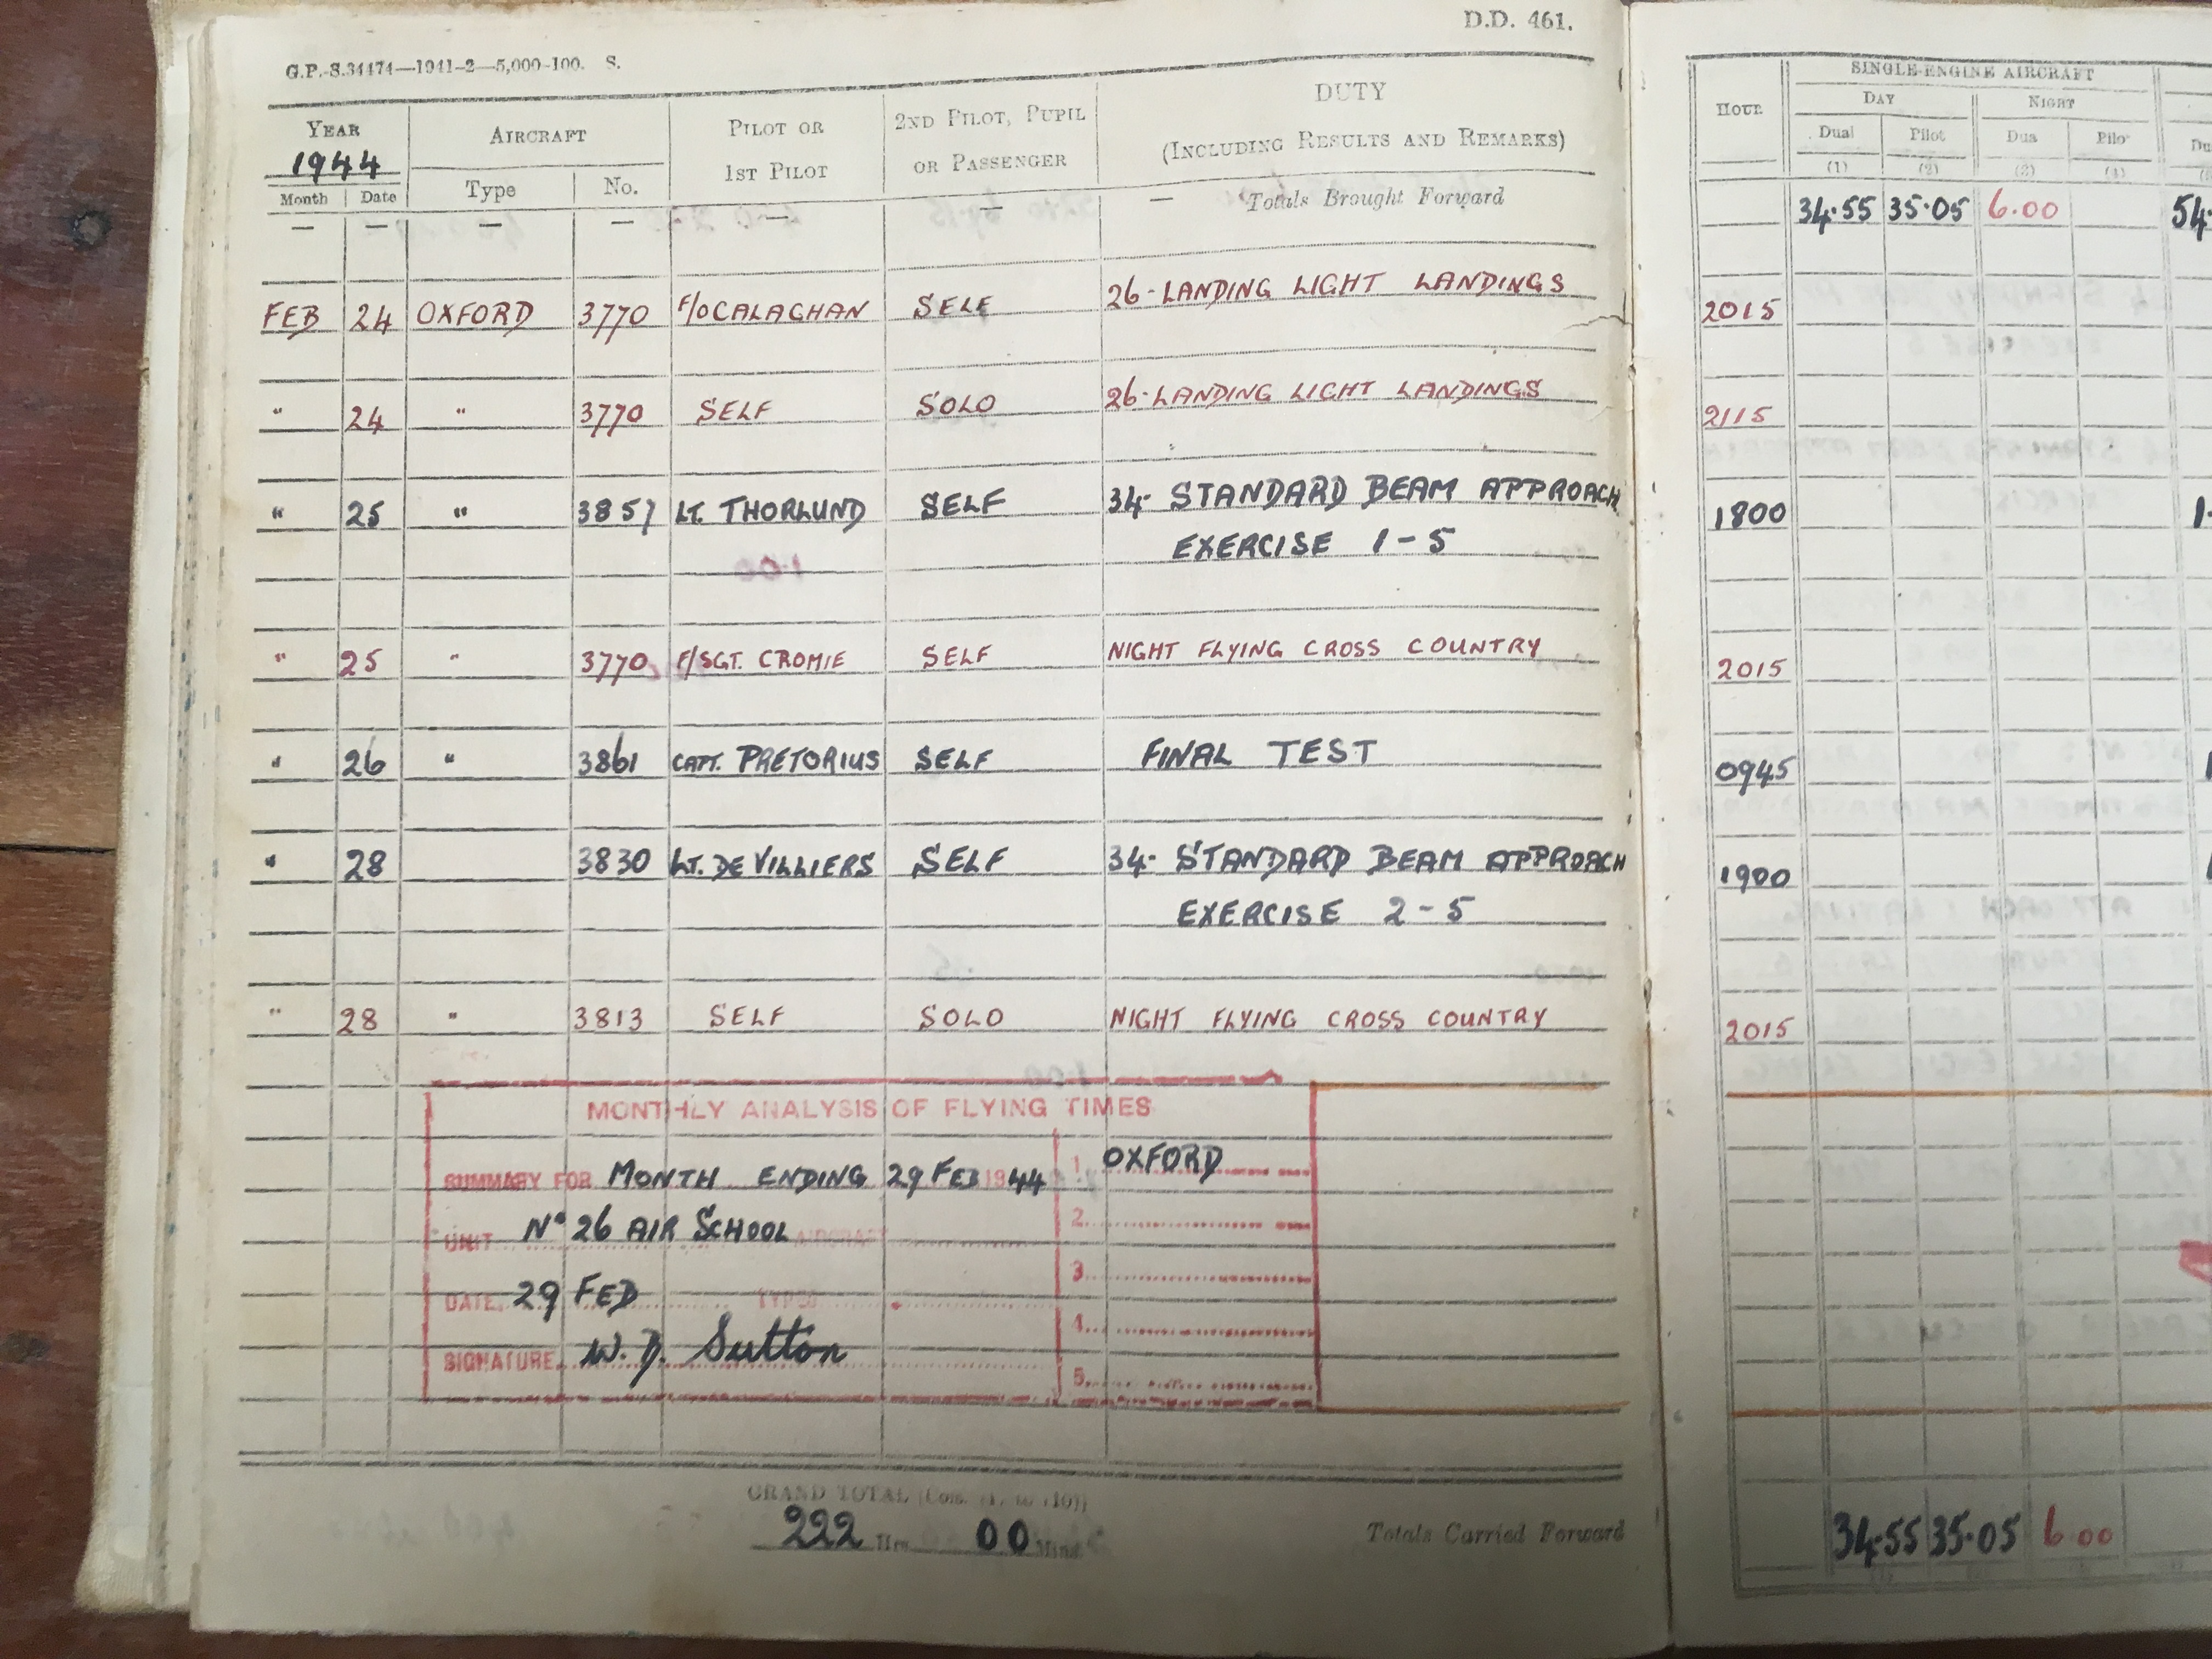 D.D. 461.
G.P.-S.34474—1941-2—5,000-100. S.
YEAR 1944 AIRCRAFT PILOT OR 1ST PILOT 2ND PILOT, PUPIL OR PASSENGER DUTY (INCLUDING RESULTS AND REMARKS)
Month Date Type No.
— — — — — — — Totals Brought Forward
FEB 24 OXFORD 3770 F/O CALAGHAN SELF 26- LANDING LIGHT LANDINGS
" 24 " 3770 SELF SOLO 26- LANDING LIGHT LANDINGS
" 25 " 3857 LT. THORLUND SELF 34- STANDARD BEAM APPROACH
EXERCISE 1-5
" 25 " 3770 F/SGT. CROMIE SELF NIGHT FLYING CROSS COUNTRY
" 26 " 3861 CAPT. PRETORIUS SELF FINAL TEST
" 28 3830 LT. DE VILLIERS SELF 34- STANDARD BEAM APPROACH
EXERCISE 2-5
" 28 " 3813 SELF SOLO NIGHT FLYING CROSS COUNTRY
MONTHLY ANALYSIS OF FLYING TIMES
SUMMARY FOR MONTH ENDING 29 FEB 1944 1. OXFORD
UNIT No 26 AIR SCHOOL AIRCRAFT 2.
3.
DATE. 29 FEB TYPES
4.
SIGNATURE. W. D. Sutton
5.
GRAND TOTAL [Cols. (1) to (10)]
222 Hrs. 00 Mins. Totals Carried Forward
HOUR. SINGLE-ENGINE AIRCRAFT
DAY NIGHT
Dual Pilot Dua Pilo
(1) (2) (3) (4)
34.55 35.05 6.00 54.
2015
2115
1800 1.
2015
0945
1900
2015
34.55 35.05 6.00